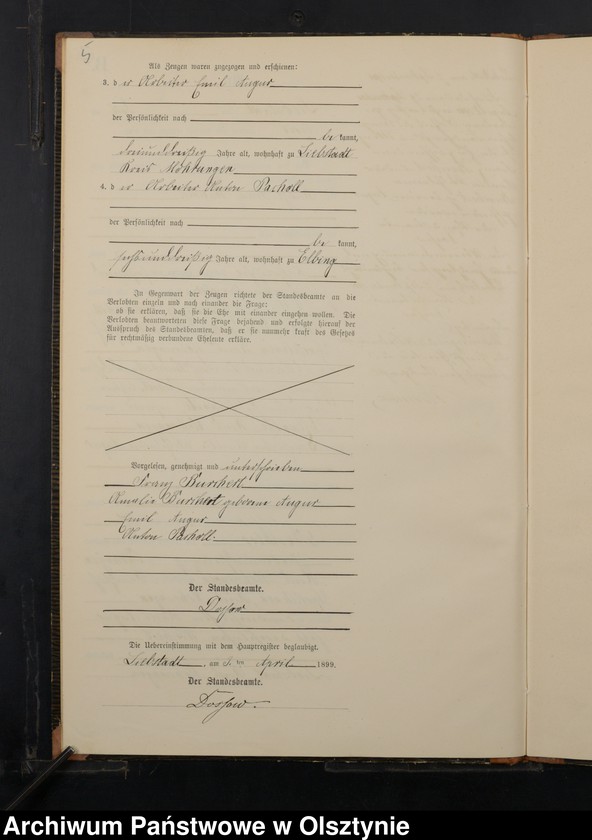 5
Als Zeugen waren zugezogen und erschienen:
3. d er Arbeiter Emil Augur
der Persönlichkeit nach
be kannt,
dreiunddreißig Jahre alt, wohnhaft zu Liebstadt
Kreis Mohrungen
4. d er Arbeiter Anton Pachall
der Persönlichkeit nach
be kannt,
sechsunddreißig Jahre alt, wohnhaft zu Elbing
In Gegenwart der Zeugen richtete der Standesbeamte an die
Verlobten einzeln und nach einander die Frage:
ob sie erklären, daß sie die Ehe mit einander eingehen wollen. Die
Verlobten beantworteten diese Frage bejahend und erfolgte hierauf der
Ausspruch des Standesbeamten, daß er sie nunmehr kraft des Gesetzes
für rechtmäßig verbundene Eheleute erkläre.
Vorgelesen, genehmigt und unterschrieben
Franz Burchert
Amalie Burchert geborene Augur
Emil Augur
Anton Pachall.
Der Standesbeamte.
Dossow
Die Uebereinstimmung mit dem Hauptregister beglaubigt.
Liebstadt, am 3. ten April 1899.
Der Standesbeamte.
Dossow.
Archiwum Państwowe w Olsztynie